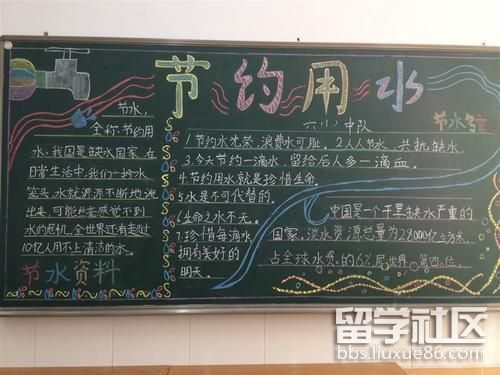 节约用水
六(小)中队
节水,
全称:节约用
水。我国是缺水国家,在
日常生活中,我们一拧水
龙头,水就源源不断地流
出来,可能丝毫感觉不到
水的危机,全世界还有超过
10亿人用不上清洁的水。
节水资料
节水名言
1.节约水光荣,浪费水可耻。2.人人节水,共抗缺水。
3.今天节约一滴水,留给后人多一滴血。
4.节约用水就是珍惜生命。
5.水是不可代替的。
6.生命之水不无。
7.珍惜每滴水,
拥有美好的
明天。
中国是一个干旱缺水严重的
国家。淡水资源总量为28000亿立方米,
占全球水资的6%,居世界第四位。
留学社区
bbs.liuxue86.com